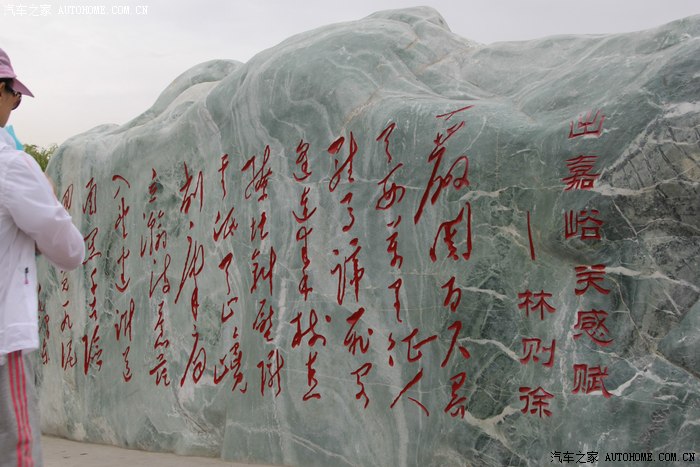 汽车之家 AUTOHOME.COM.CN
出嘉峪关感赋
— 林则徐
严关百尺界
天西万里征人
驻马蹄飞阁
遥连秦树直
缭垣斜压陇
云低天山巉
削摩肩
立瀚海苍茫
入望迷谁道
函千古险
回
一丸泥
汽车之家 AUTOHOME.COM.CN